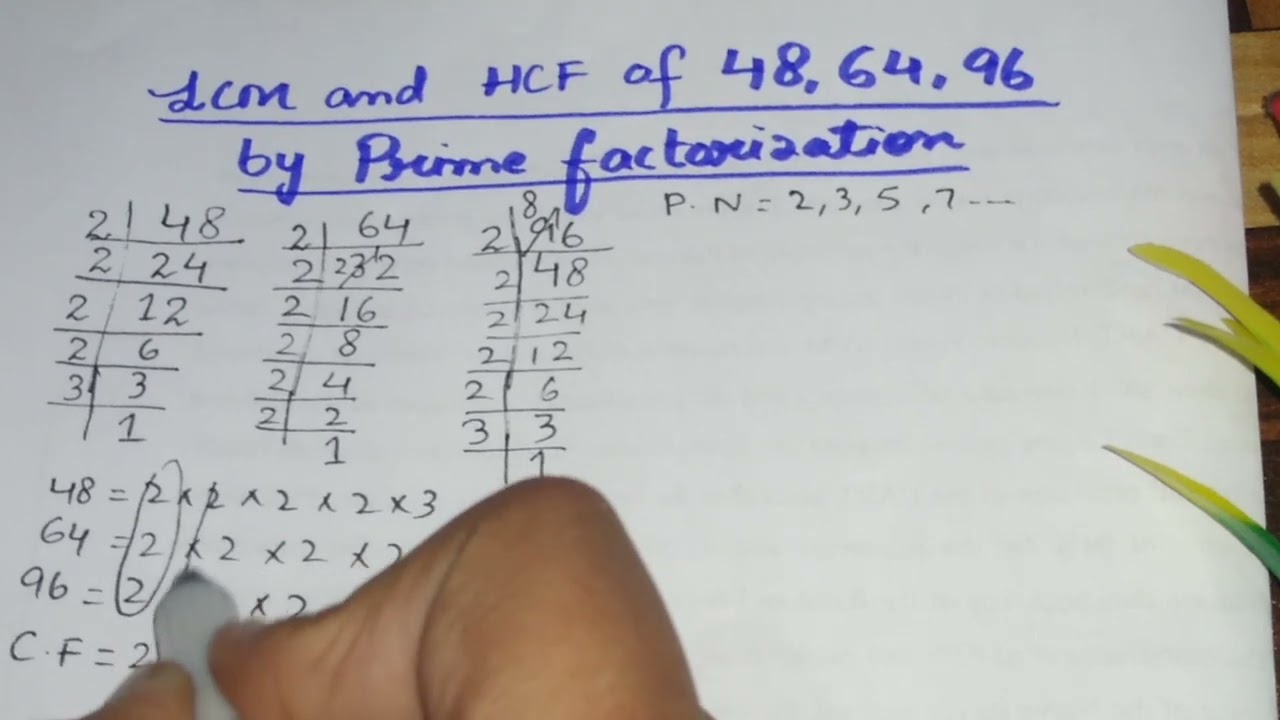 Lcm and HCF of 48, 64, 96
by Prime factorization
P. N = 2, 3, 5, 7 ----
2 | 48
2 | 24
2 | 12
2 | 6
3 | 3
1
2 | 64
2 | 2 3 1 2
2 | 16
2 | 8
2 | 4
2 | 2
1
2 | 8 9 1 6
2 | 48
2 | 24
2 | 12
2 | 6
3 | 3
1
48 = 2 × 2 × 2 × 2 × 3
64 = 2 × 2 × 2 × 2
96 = 2 × 2
C.F = 2